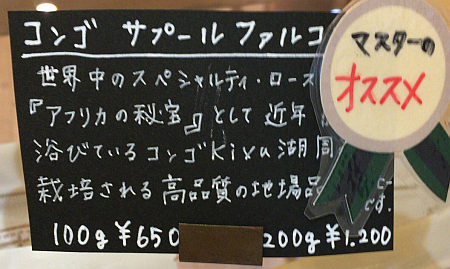 コンゴ サプール ファルコ
マスターの
オススメ
世界中のスペシャルティ・ロース
『アフリカの秘宝』として 近年
浴びている コンゴ Kivu湖 周
栽培される 高品質の地場品
です。
100g ¥650
200g ¥1.200